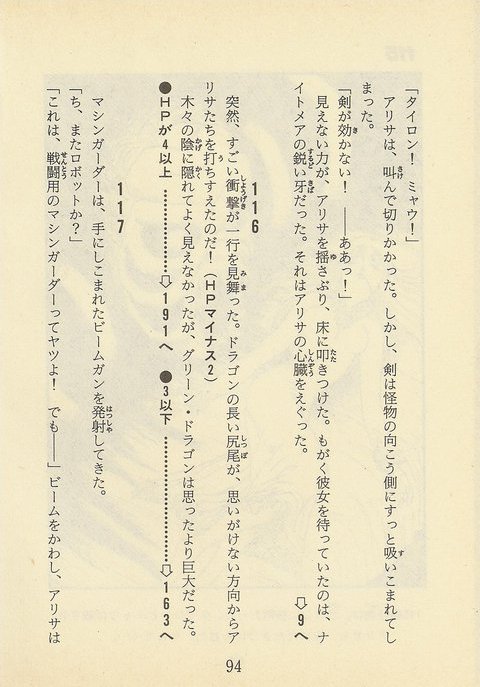 「タイロン！　ミャウ！」
アリサは、叫んで切りかかった。しかし、剣は怪物の向こう側にすっと吸いこまれてし
まった。
「剣が効かない！　――ああっ！」
見えない力が、アリサを揺さぶり、床に叩きつけた。もがく彼女を待っていたのは、ナ
イトメアの鋭い牙だった。それはアリサの心臓をえぐった。
⇨9へ
116
突然、すごい衝撃が一行を見舞った。ドラゴンの長い尻尾が、思いがけない方向からア
リサたちを打ちすえたのだ！（HPマイナス2）
木々の陰に隠れてよく見えなかったが、グリーン・ドラゴンは思ったより巨大だった。
●HPが4以上…………⇨191へ　●3以下…………⇨163へ
117
マシンガーダーは、手にしこまれたビームガンを発射してきた。
「ち、またロボットか？」
「これは、戦闘用のマシンガーダーってヤツよ！　でも――」ビームをかわし、アリサは
94